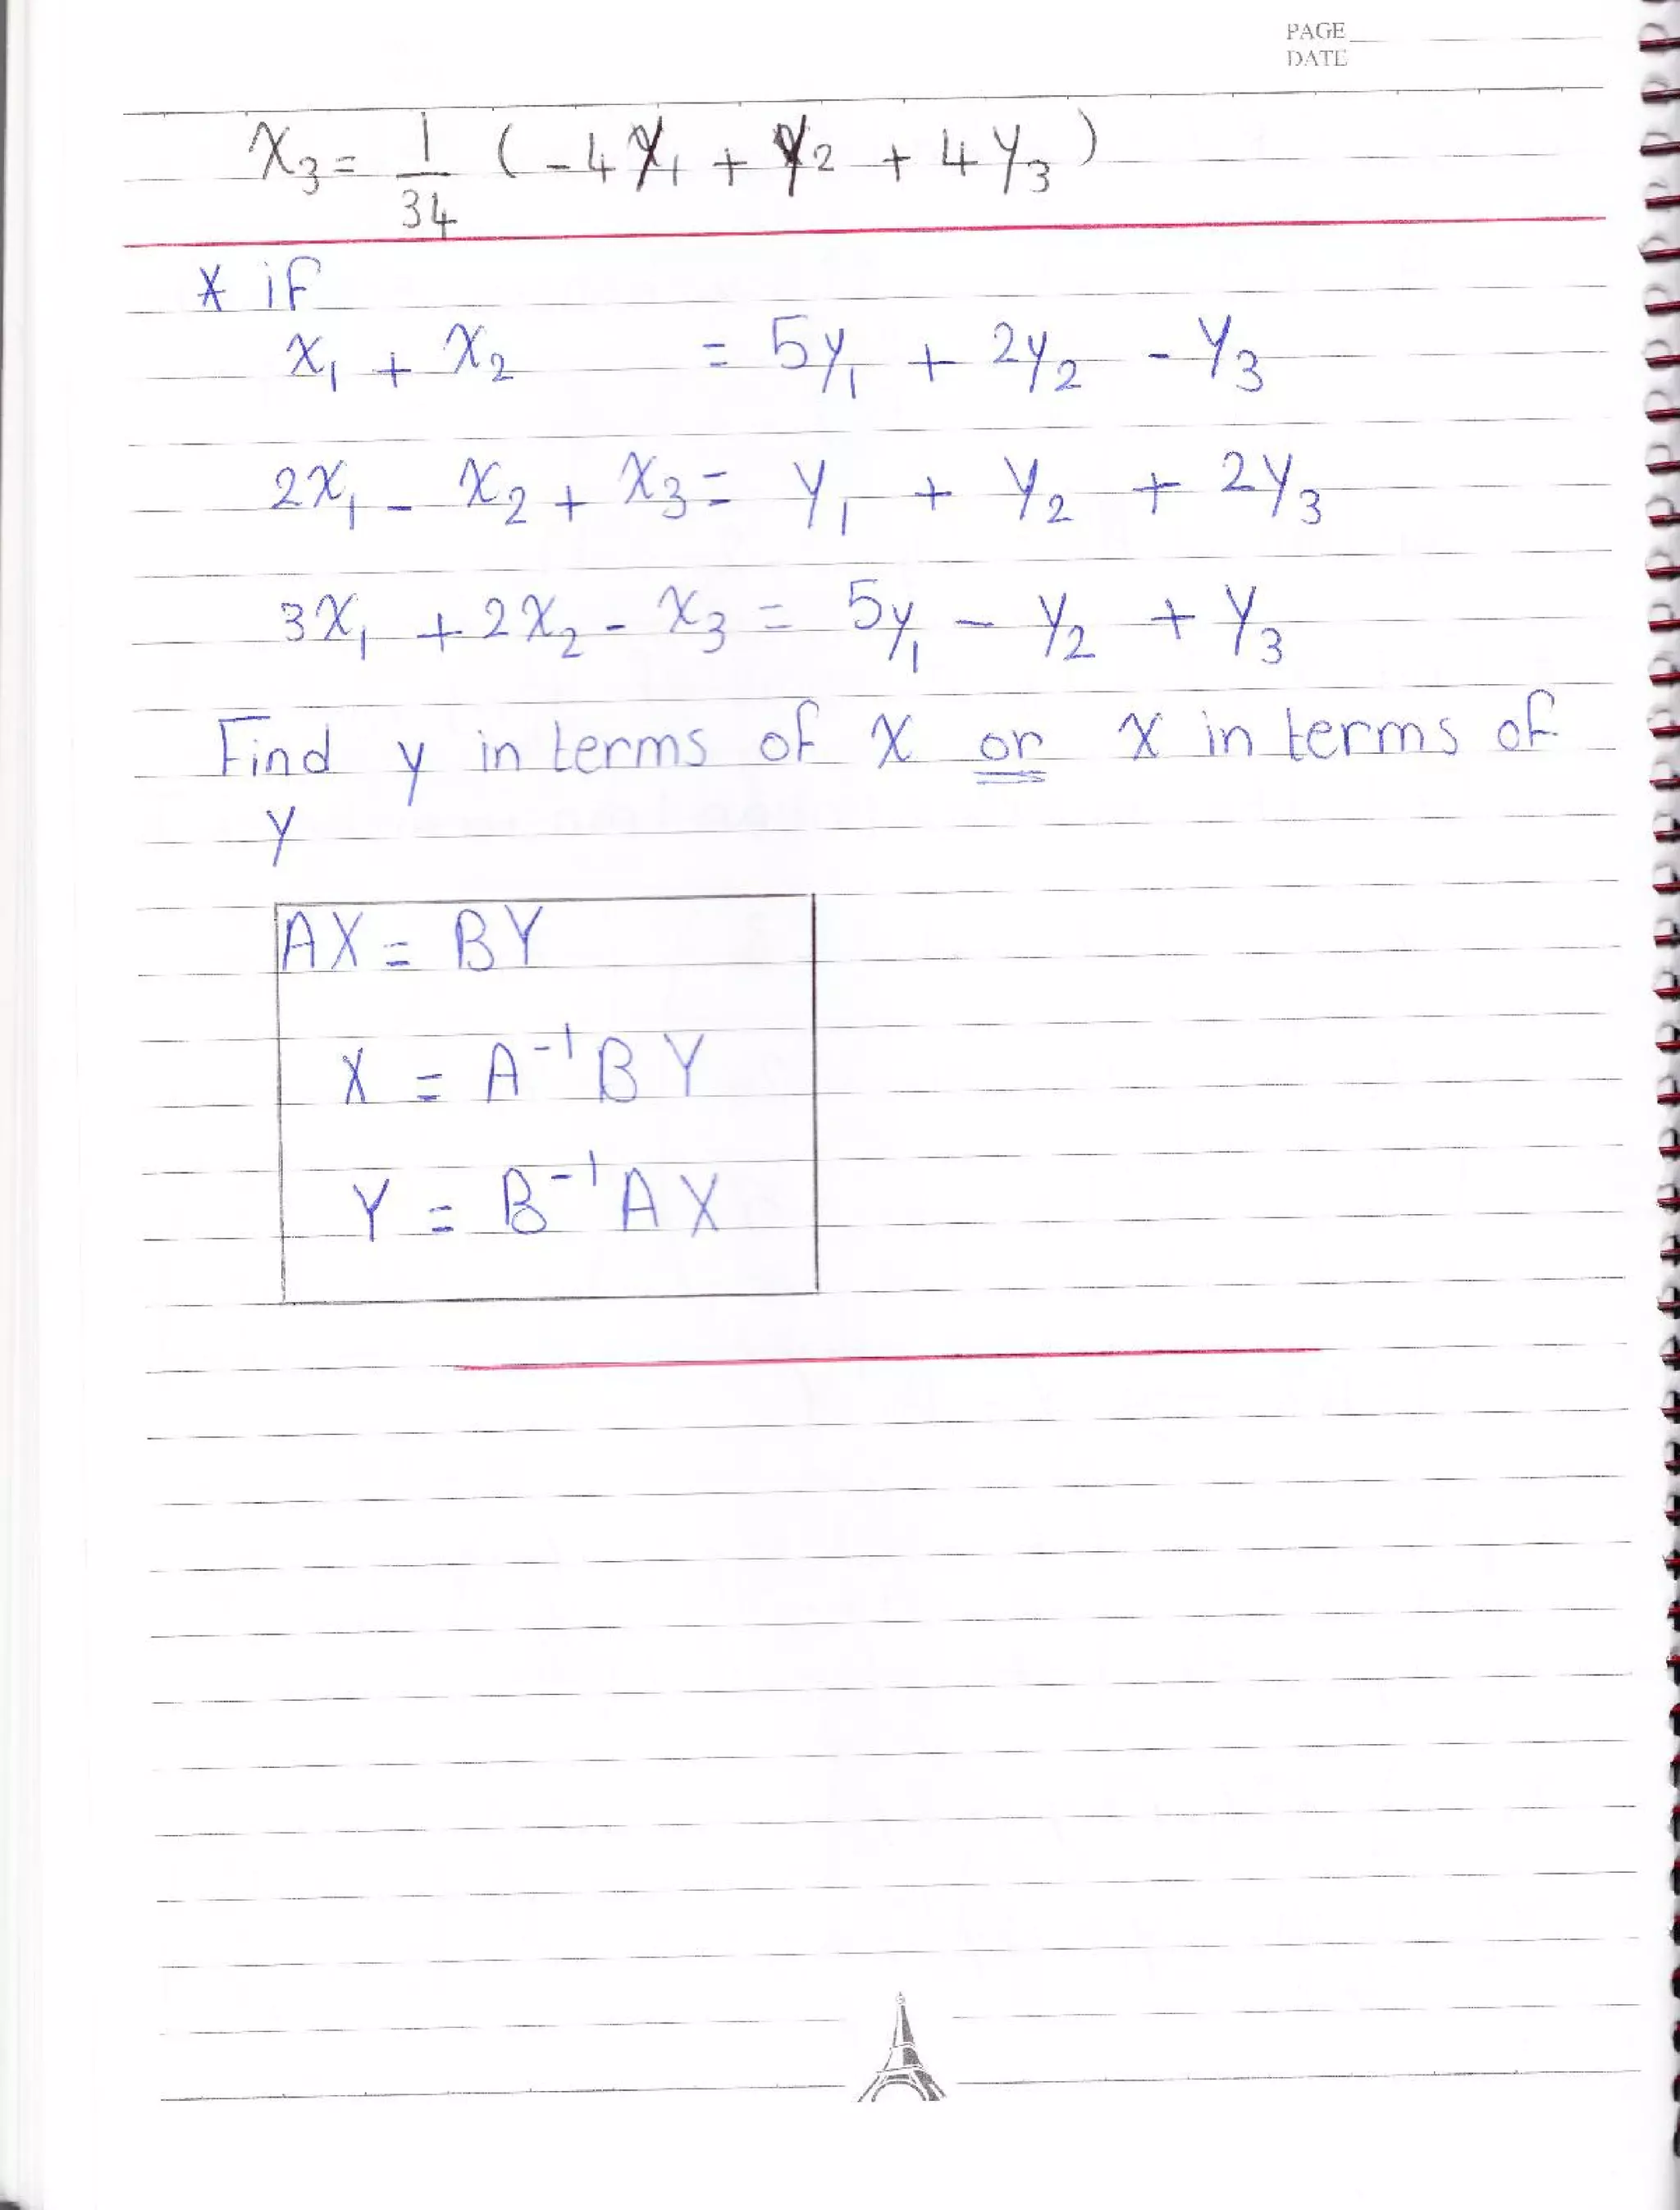 PAGE
DATE
x₃ = 1/34 (-4y₁ + y₂ + 4y₃)
* if
x₁ + x₂ = 5y₁ + 2y₂ - y₃
2x₁ - x₂ + x₃ = y₁ + y₂ + 2y₃
3x₁ + 2x₂ - x₃ = 5y₁ - y₂ + y₃
Find y in terms of x or x in terms of
y
AX = BY
X = A⁻¹BY
Y = B⁻¹AX